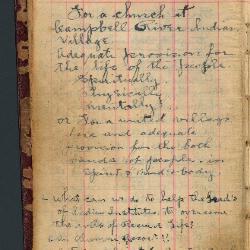 For a church at
Campbell River Indian
Village
Adequate provision for
the life of the people
Spiritually
Physically
mentally!
or for a united village
here and adequate
provision for the both
bands of people. in
Spirit & mind & body
- What can we do to help the
of Indian Institutes to overcome
the evils of Life?